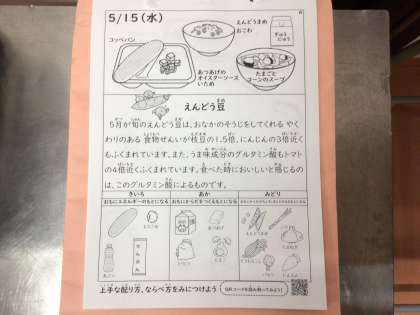 5/15(水)
コッペパン
えんどうまめ
おこわ
ぎゅう
にゅう
あつあげの
オイスターソース
いため
たまごと
コーンのスープ
えんどう豆
5月が旬のえんどう豆は、おなかのそうじをしてくれる やく
わりのある 食物せんいが枝豆の1.5倍、にんじんの3倍近く
もふくまれています。また、うま味成分のグルタミン酸もトマト
の4倍近くふくまれています。食べた時においしいと感じるの
は、このグルタミン酸によるものです。
きいろ
あか
みどり
おもにエネルギーのもとになる
おもにからだをつくるもとになる
上手な配り方、ならべ方をみにつけよう
QRコードを読み取ってみよう